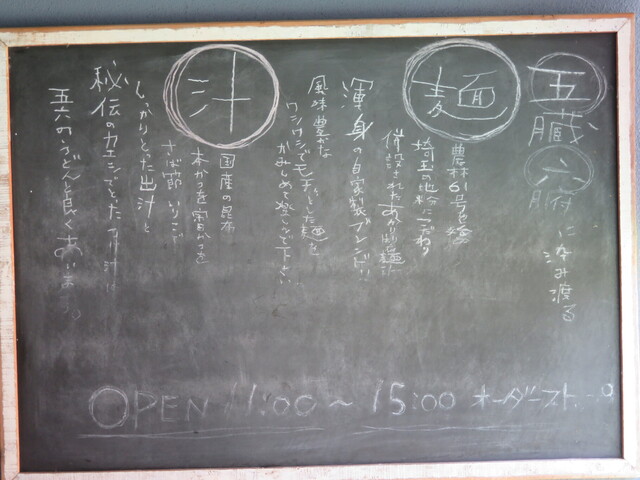 五臓六腑に染み渡る
麺
農林61号を
埼玉の地粉にこだわり
併設された製麺
渾身の自家製ブレンド!!
風味豊かな
ワシワシでモチっとした麺を
かみしめて楽しんで下さい
汁
国産の昆布
本かつを 宗田かつを
さば節 いりこで
しっかりとった出汁と
秘伝のカエシでとった
五六のうどんと良くあいます。
OPEN 11:00 ~ 15:00 オーダーストップ